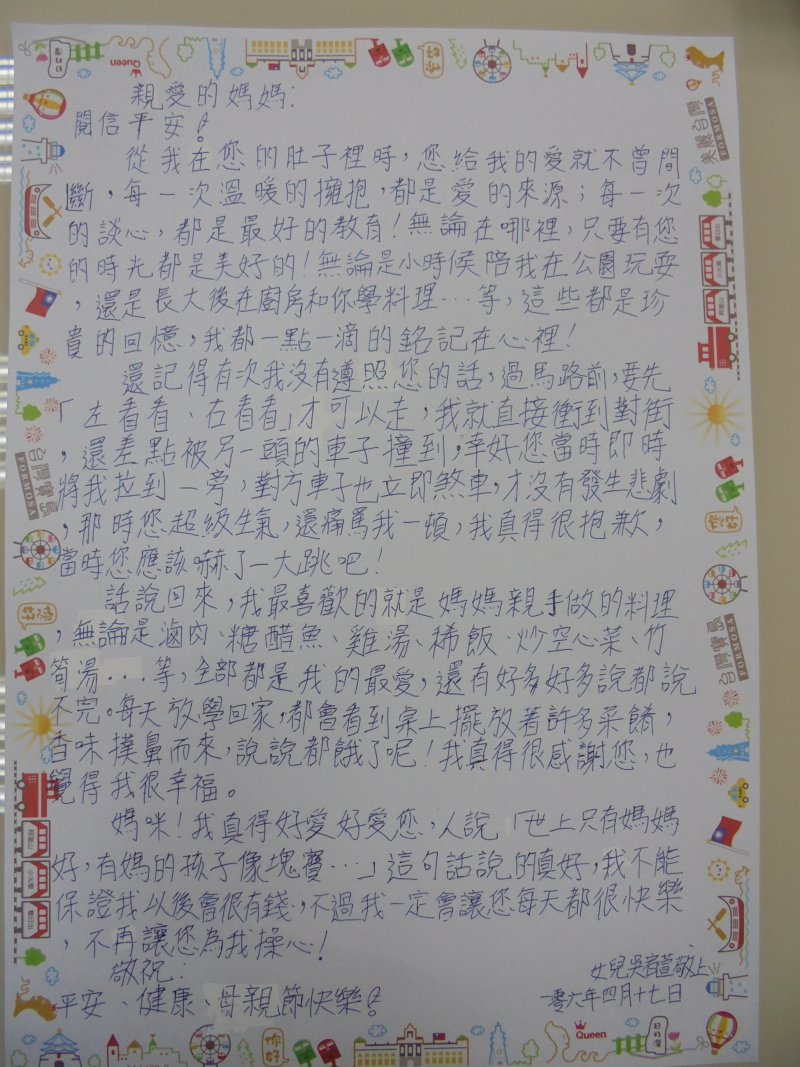 親愛的媽媽:
閱信平安!
從我在您的肚子裡時,您給我的愛就不曾間
斷,每一次溫暖的擁抱,都是愛的來源;每一次
的談心,都是最好的教育!無論在哪裡,只要有您
的時光都是美好的!無論是小時候陪我在公園玩耍
,還是長大後在廚房和你學料理...等,這些都是珍
貴的回憶,我都一點一滴的銘記在心裡!
還記得有次我沒有遵照您的話,過馬路前,要先
「左看看、右看看」才可以走,我就直接衝到對街
,還差點被另一頭的車子撞到,幸好您當時即時
將我拉到一旁,對方車子也立即煞車,才沒有發生悲劇
,那時您超級生氣,還痛罵我一頓,我真得很抱歉,
當時您應該嚇了一大跳吧!
話說回來,我最喜歡的就是媽媽親手做的料理
,無論是滷肉、糖醋魚、雞湯、稀飯、炒空心菜、竹
筍湯...等,全部都是我的最愛,還有好多好多說都說
不完。每天放學回家,都會看到桌上擺放著許多菜餚,
香味撲鼻而來,說說都餓了呢!我真得很感謝您,也
覺得我很幸福。
媽咪!我真得好愛好愛您,人說「世上只有媽媽
好,有媽的孩子像塊寶...」這句話說的真好,我不能
保證我以後會很有錢,不過我一定會讓您每天都很快樂
,不再讓您為我操心!
敬祝:
平安、健康、母親節快樂!
女兒吳宥萱敬上
一零六年四月十七日
Queen
你好
美麗台灣
FORMOSA
台灣寶島
FORMOSA
阿里山
小火車
看日出
日月潭
Queen